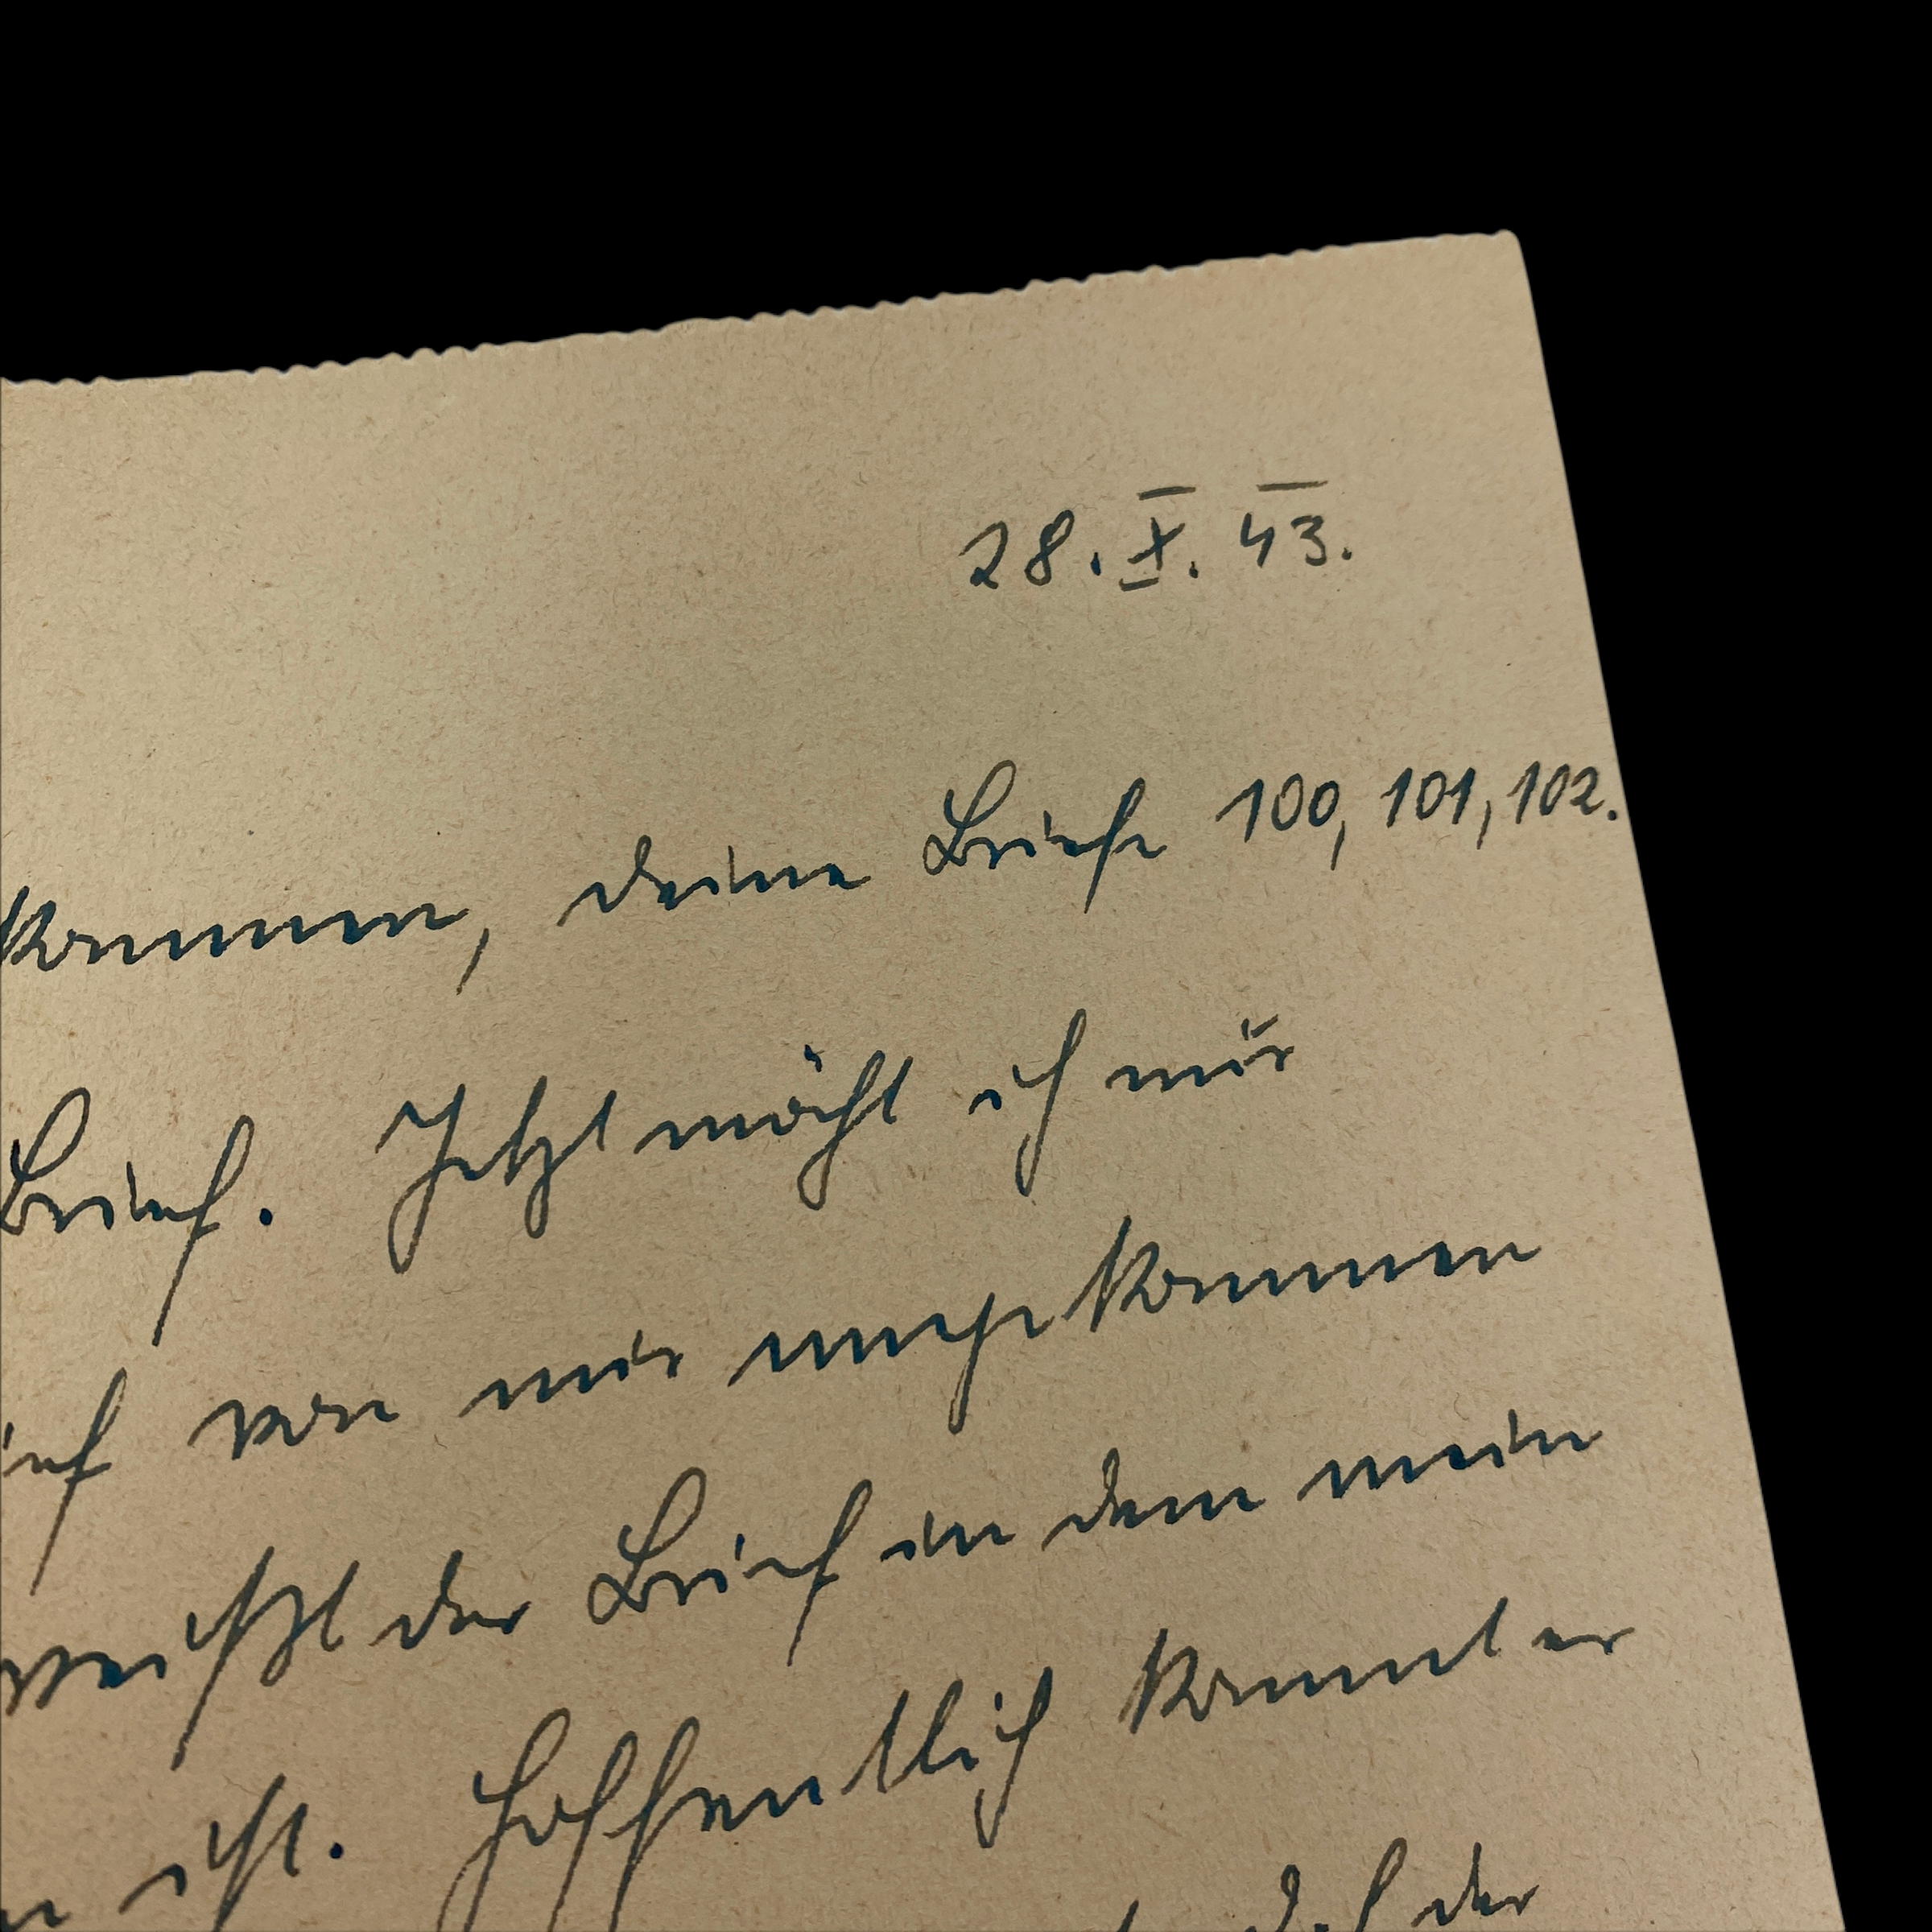 28. X. 43.
kommen, deine Briefe 100, 101, 102.
Brief. Jetzt möcht ich nur
von mir angekommen
weißt der Brief in dem mein
ist. Hoffentlich kommt er
der